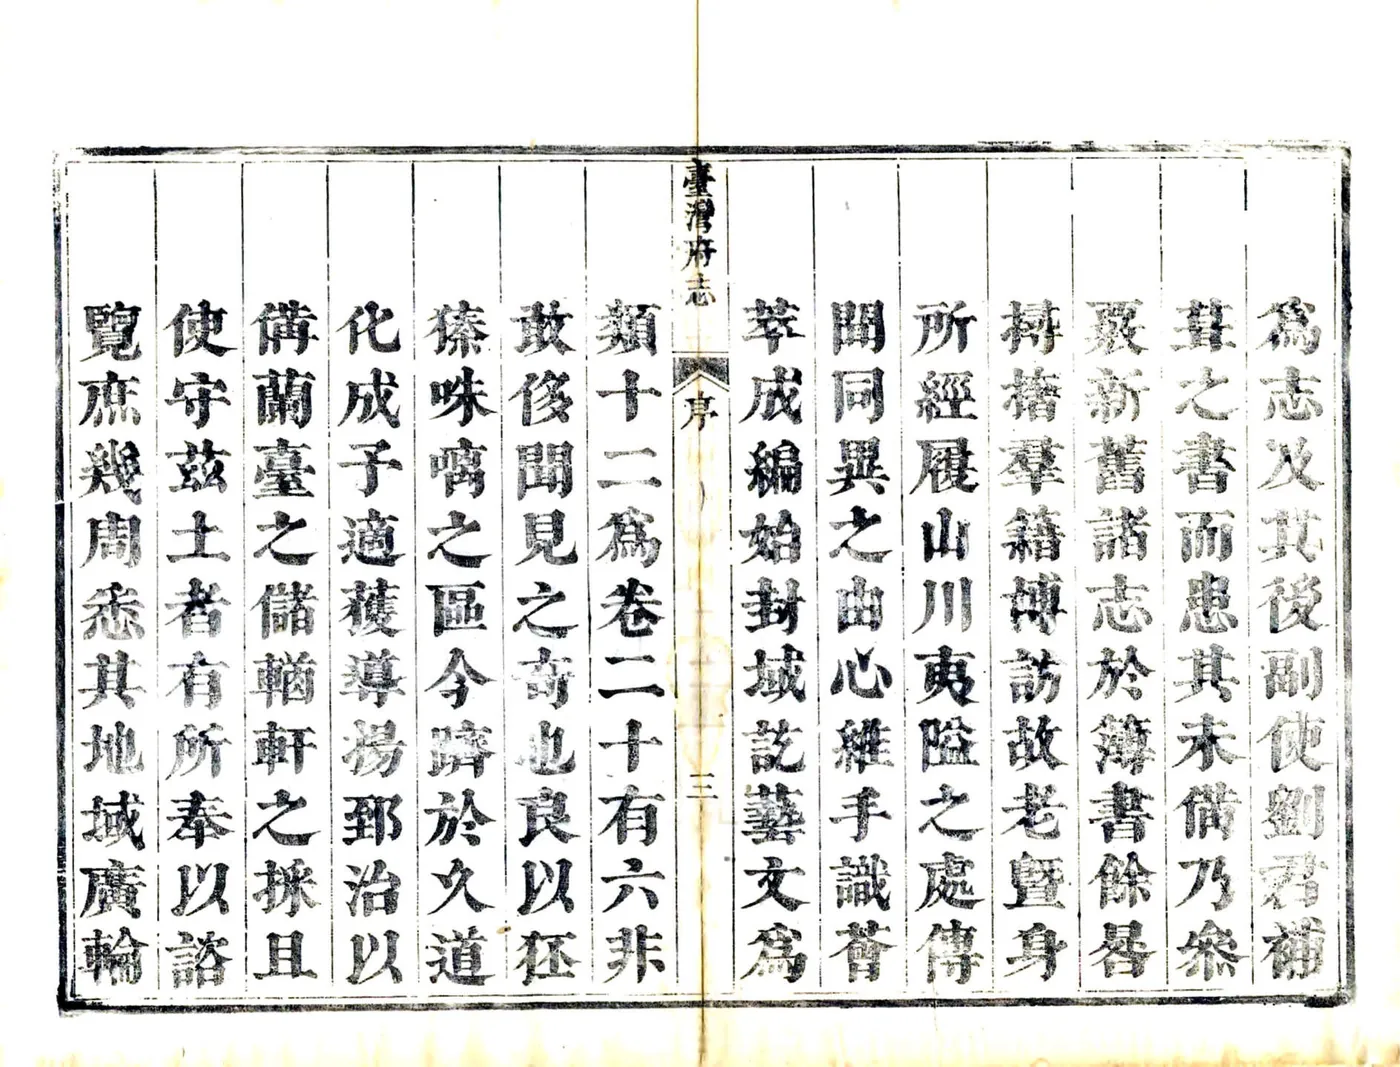 為志及其後副使劉君補
葺之書而患其未備乃衆
裒新舊諸志於簿書餘晷
摶撦羣籍博訪故老曁身
所經履山川夷隘之處傳
聞同異之由心維手識薈
萃成編始封域訖藝文為
臺灣府志
序
三
類十二為卷二十有六非
敢侈聞見之奇也良以狉
獉咮㖿之區今躋於久道
化成予適獲導揚郅治以
備蘭臺之儲輶軒之採且
使守茲土者有所奉以諮
覽庶幾周悉其地域廣輪